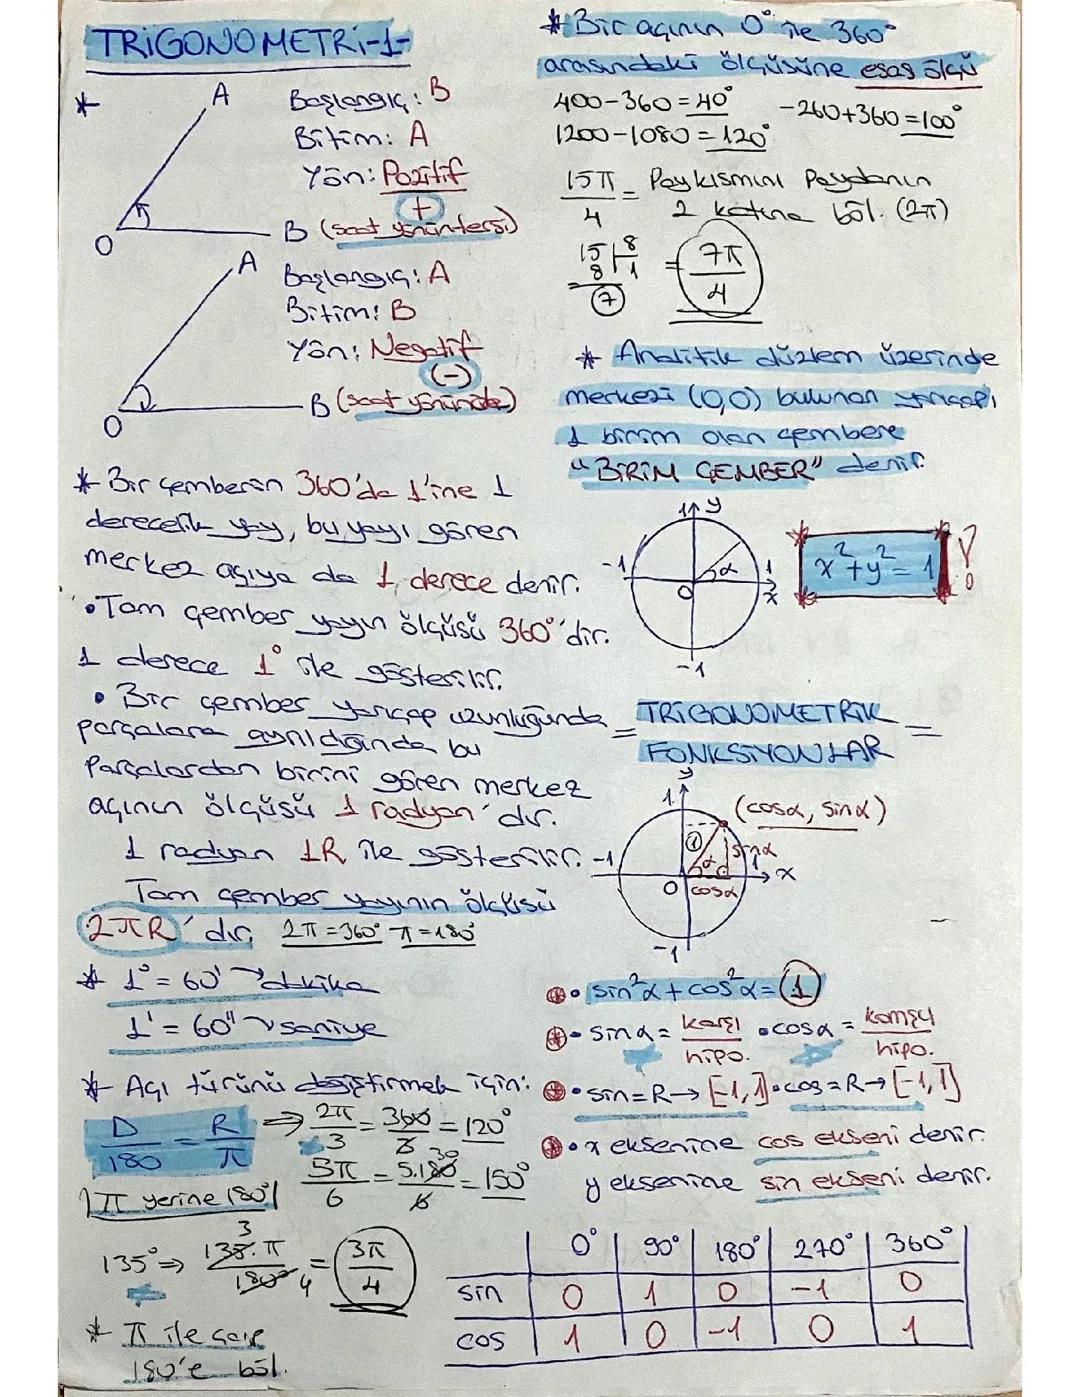 TRİGONOMETRİ-1-
*
A
Başlangıç: B
Bitim: A
Yön: Pozitif
+
O
B (saat yönün tersi)
A
Başlangıç: A
Bitim: B
Yön: Negatif
(-)
O
B (saat yönünde)
* Bir çemberin 360'da 1'ine 1
derecelik yay, bu yayı gören
merkez açıya da 1 derece denir.
• Tam çember yayın ölçüsü 360°'dir.
1 derece 1° ile gösterilir.
• Bir çember yarıçap uzunluğunda
parçalara ayrıldığında bu
Parçalardan birini gören merkez
açının ölçüsü 1 radyan'dır.
1 radyan 1R ile gösterilir.
Tam çember yayının ölçüsü
2πR'dir, 2π=360° π=180°
* 1° = 60' → dakika
1' = 60" → saniye
* Açı türünü değiştirmek için:
D/180 = R/π ⇒ 2π/3 = 360/3 = 120°
5π/6 = 5.180/6 = 150°
30
π yerine 180°
135° ⇒ 135.π/180° = 3π/4
3
4
* π ile çarp
180'e böl.
* Bir açının 0° ile 360°
arasındaki ölçüsüne esas ölçü
400-360=40° -260+360=100°
1200-1080=120°
15π/4 = Pay kısmını Paydanın
2 katına böl. (2π)
15 | 8
8 | 1
7
= 7π/4
* Analitik düzlem üzerinde
merkezi (0,0) bulunan yarıçapı
1 birim olan çembere
"BİRİM ÇEMBER" denir.
1 y
-1 α 1
O x
-1
x²+y²=1 !
= TRİGONOMETRİK =
FONKSİYONLAR
y
1 (cosα, sinα)
1 sinα
-1 α 1 x
O cosα
-1
• sin²α + cos²α = 1
• sinα = karşı/hipo. • cosα = komşu/hipo.
• sin=R→[-1,1] • cos=R→[-1,1]
• x eksenine cos ekseni denir.
y eksenine sin ekseni denir.
0° 90° 180° 270° 360°
sin 0 1 0 -1 0
cos 1 0 -1 0 1